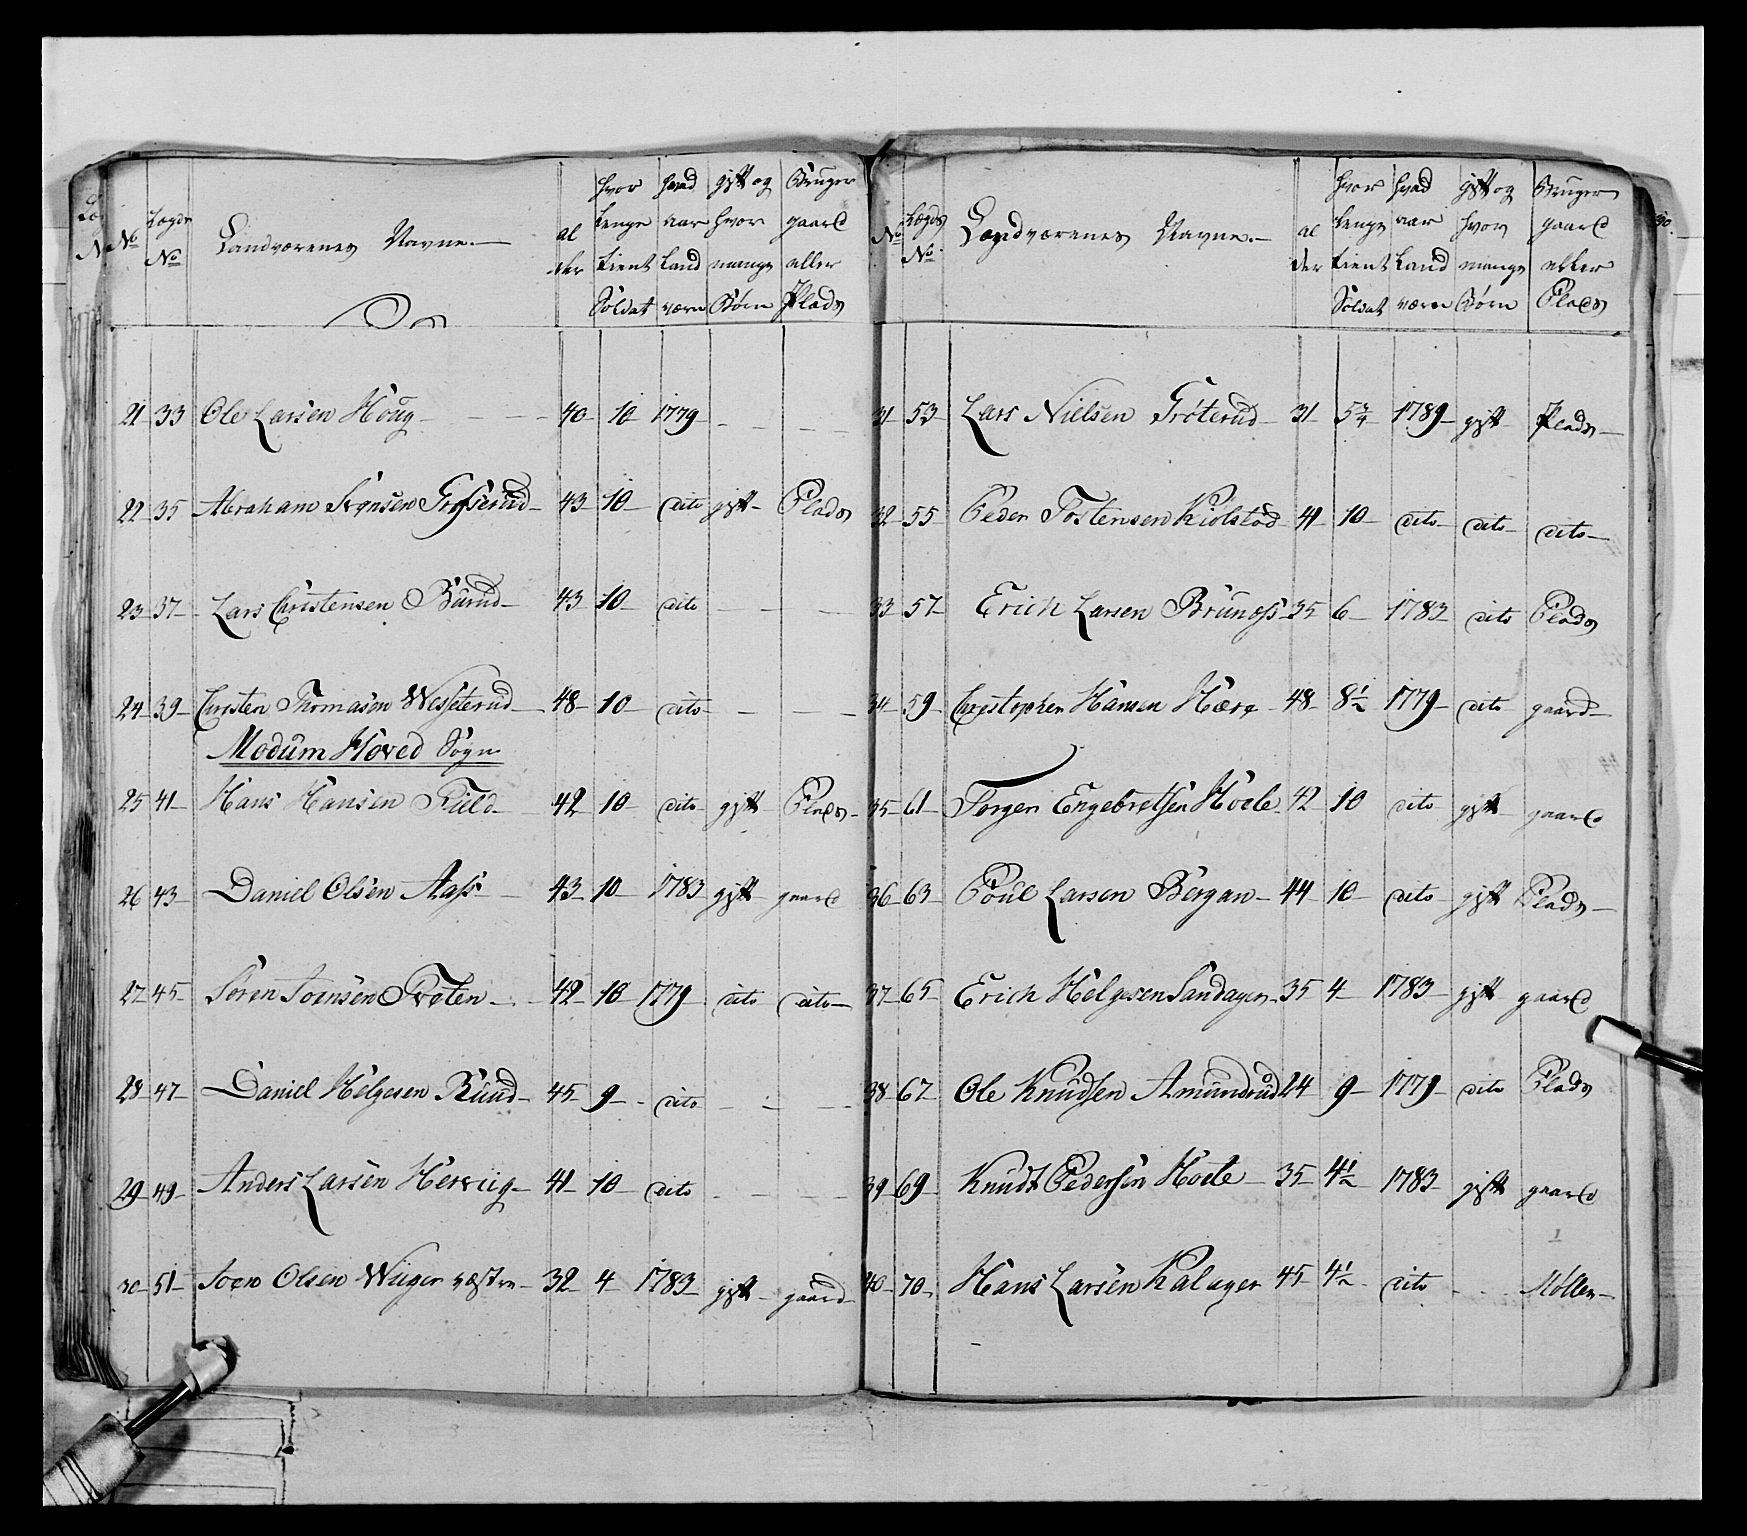 No Lægds No Landværenes Navne. alder hvor lenge tient Soldat hvad aar Land værn gift og hvor mange Börn Bruger gaard eller Plads
21 33 Ole Larsen Houg 40 10 1779 - - - -
22 35 Abraham 43 10 dito gift Plads
23 37 Lars Christensen Bürud 43 10 dito - - -
24 39 Christen Thomasön Wesseterud 48 10 dito - -
Modum Hoved Sogn
25 41 Hans Hansen Field 42 10 dito gift Plads
26 43 Daniel Olsen Aass 43 10 1783 gift gaard
27 45 Sören Joensen Troten 42 10 1779 dito dito
28 47 Daniel Helgesen Ruud 45 9 dito - - -
29 49 Anders Larsen Herwiig 41 10 dito - - -
30 51 Joen Olsen Wiiger væstre 32 4 1783 gift gaard
No Lægds No Landværenes Navne. alder hvor lenge tient Soldat hvad aar Land værn gift og hvor mange Börn Bruger gaard eller Plads
31 53 Lars Nielsen Tröterud 31 5 3/4 1789 gift Plads
32 55 Peder Tostensen Kiolstad 41 10 dito dito dito
33 57 Erich Larsen Brunoss 35 6 1783 dito Plads
34 59 Christopher Hansen Hære 48 8 1/2 1779 dito gaard
35 61 Torger Engebretsen Hoele 42 10 dito gift gaard
36 63 Poul Larsen Bergan 44 10 dito gift Plads
37 65 Erich Helgesen Sandager 35 4 1783 gift gaard
38 67 Ole Knudsen Amundrud 24 9 1779 dito Plads
39 69 Knudt Pedersen Hoele 35 4 1/2 1783 gift gaard
40 70 Hans Larsen Kalager 45 4 1/2 dito - - Möller